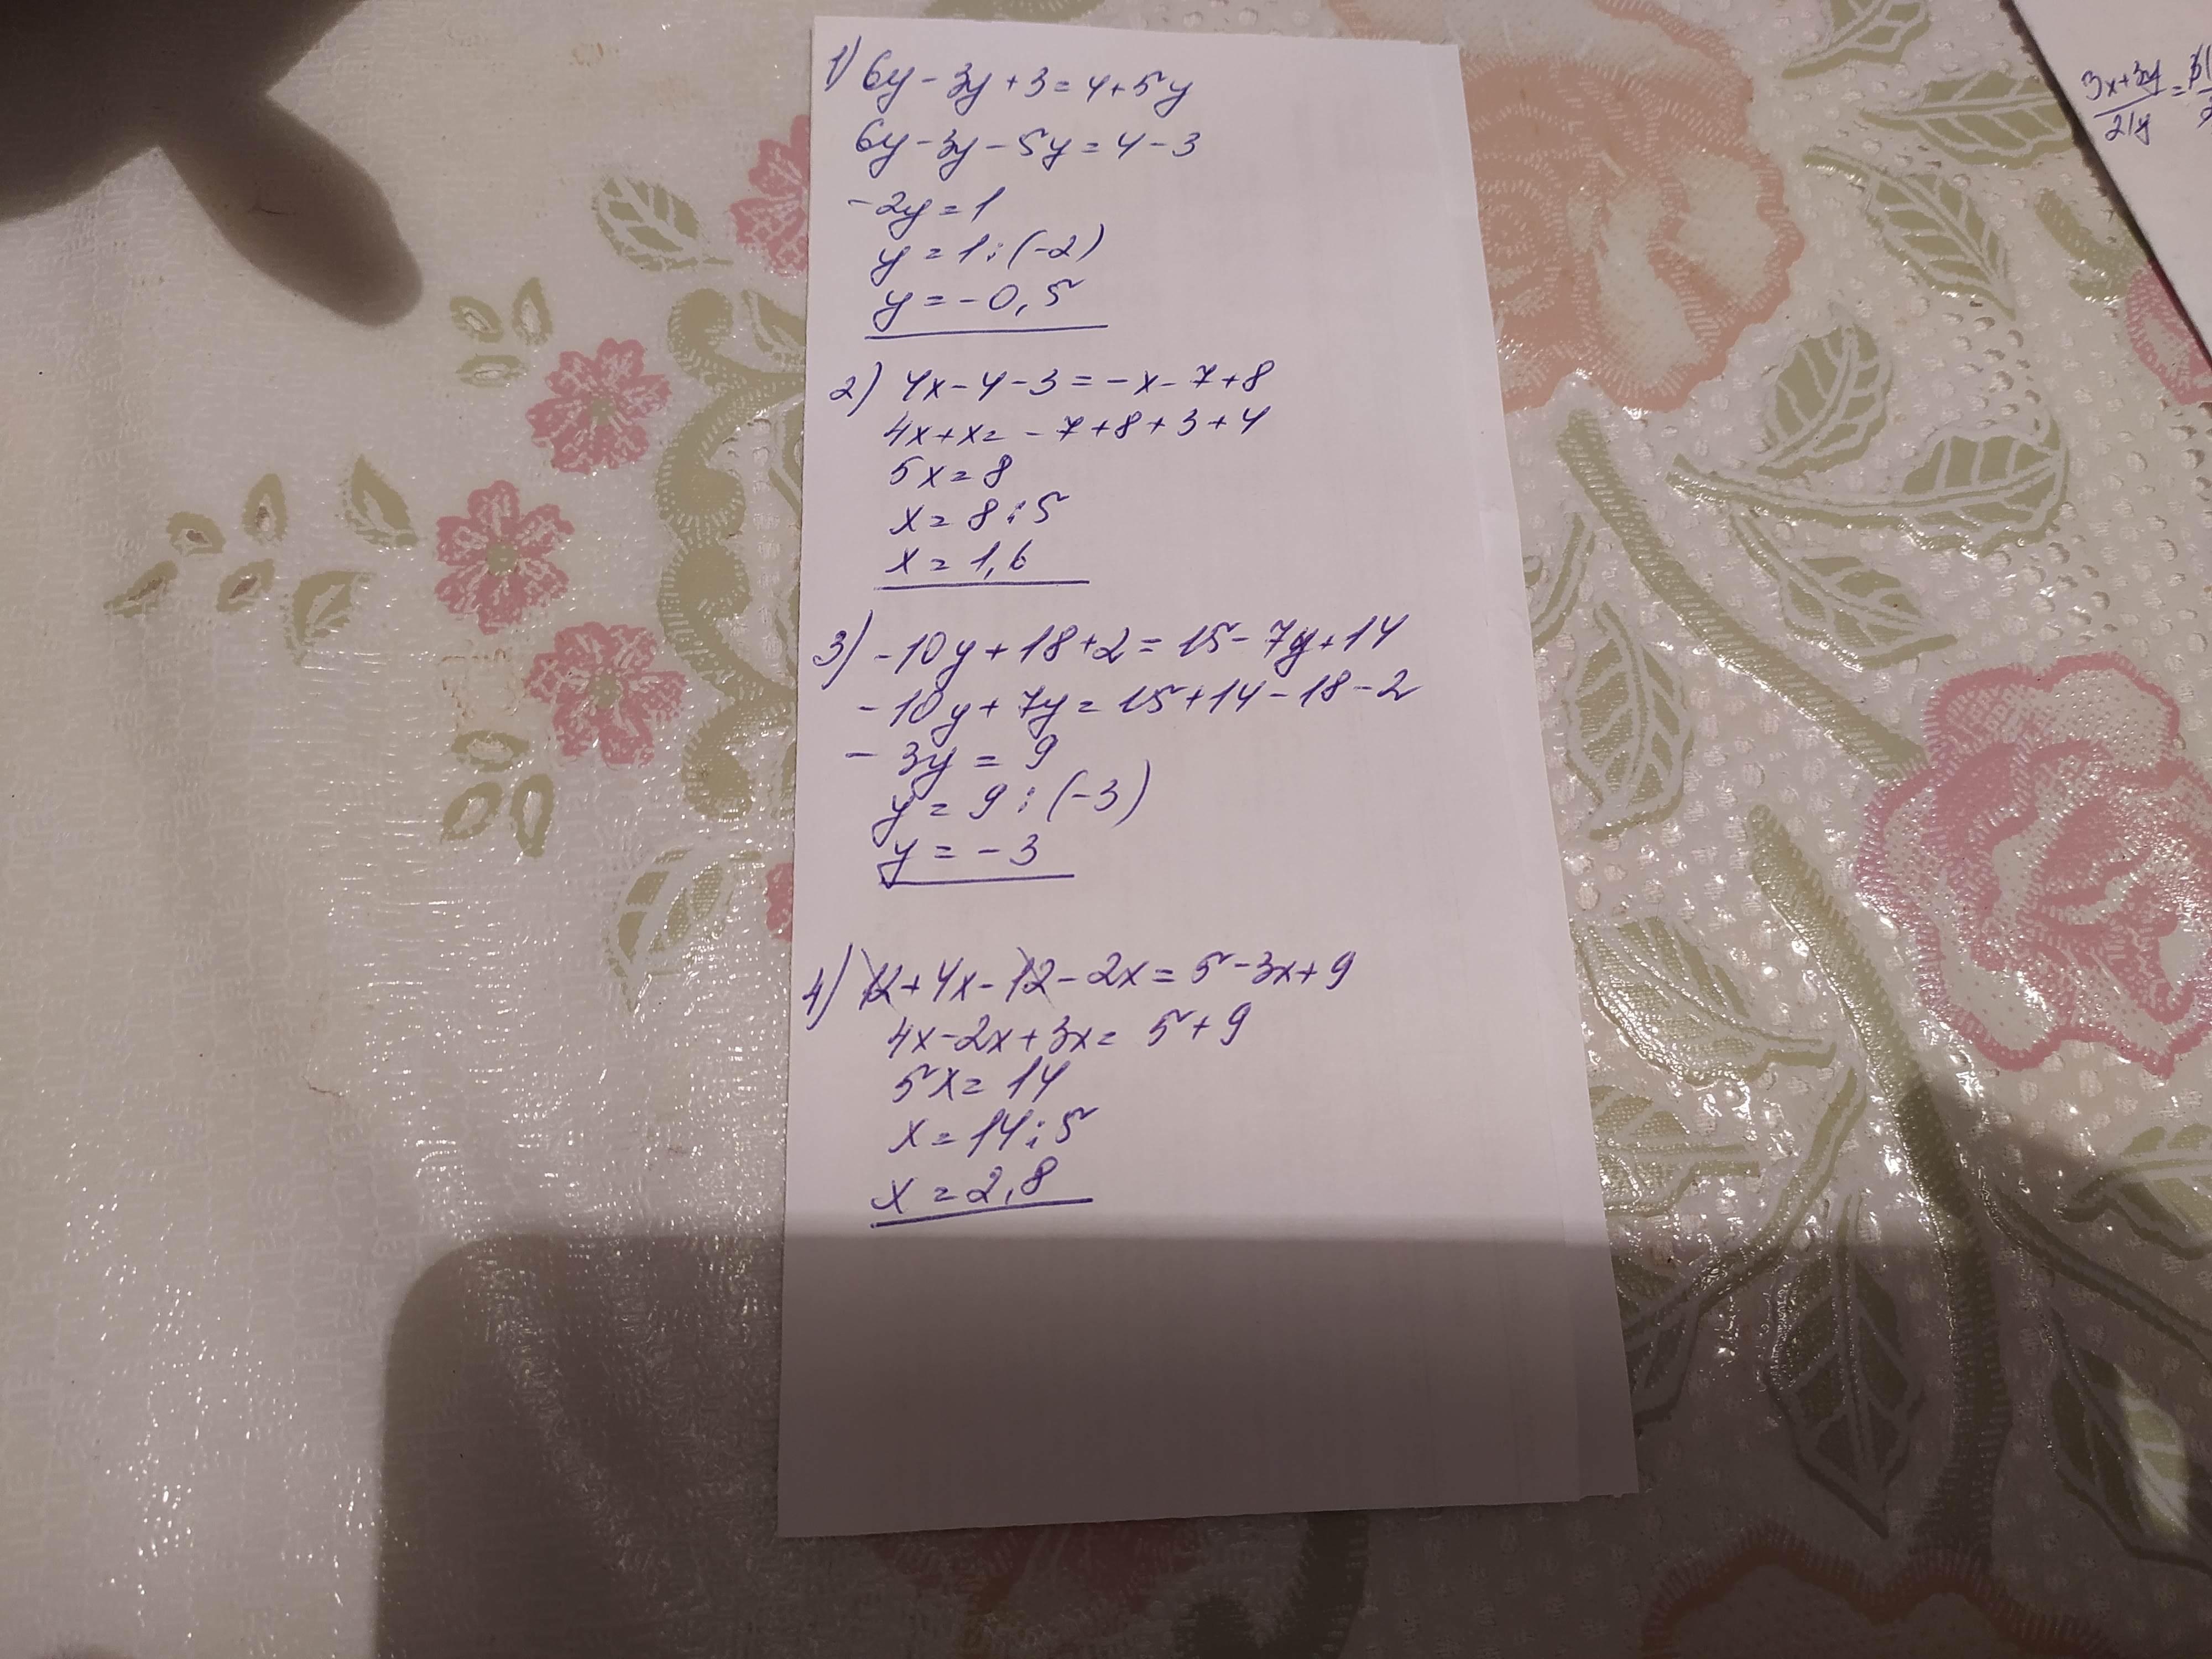 1) 6y - 3y + 3 = 4 + 5y
6y - 3y - 5y = 4 - 3
- 2y = 1
y = 1 : (-2)
y = - 0,5
2) 4x - 4 - 3 = - x - 7 + 8
4x + x = - 7 + 8 + 3 + 4
5x = 8
x = 8 : 5
x = 1,6
3) - 10y + 18 + 2 = 15 - 7y + 14
- 10y + 7y = 15 + 14 - 18 - 2
- 3y = 9
y = 9 : (-3)
y = - 3
4) 12 + 4x - 12 - 2x = 5 - 3x + 9
4x - 2x + 3x = 5 + 9
5x = 14
x = 14 : 5
x = 2,8
3x+3y =
21y